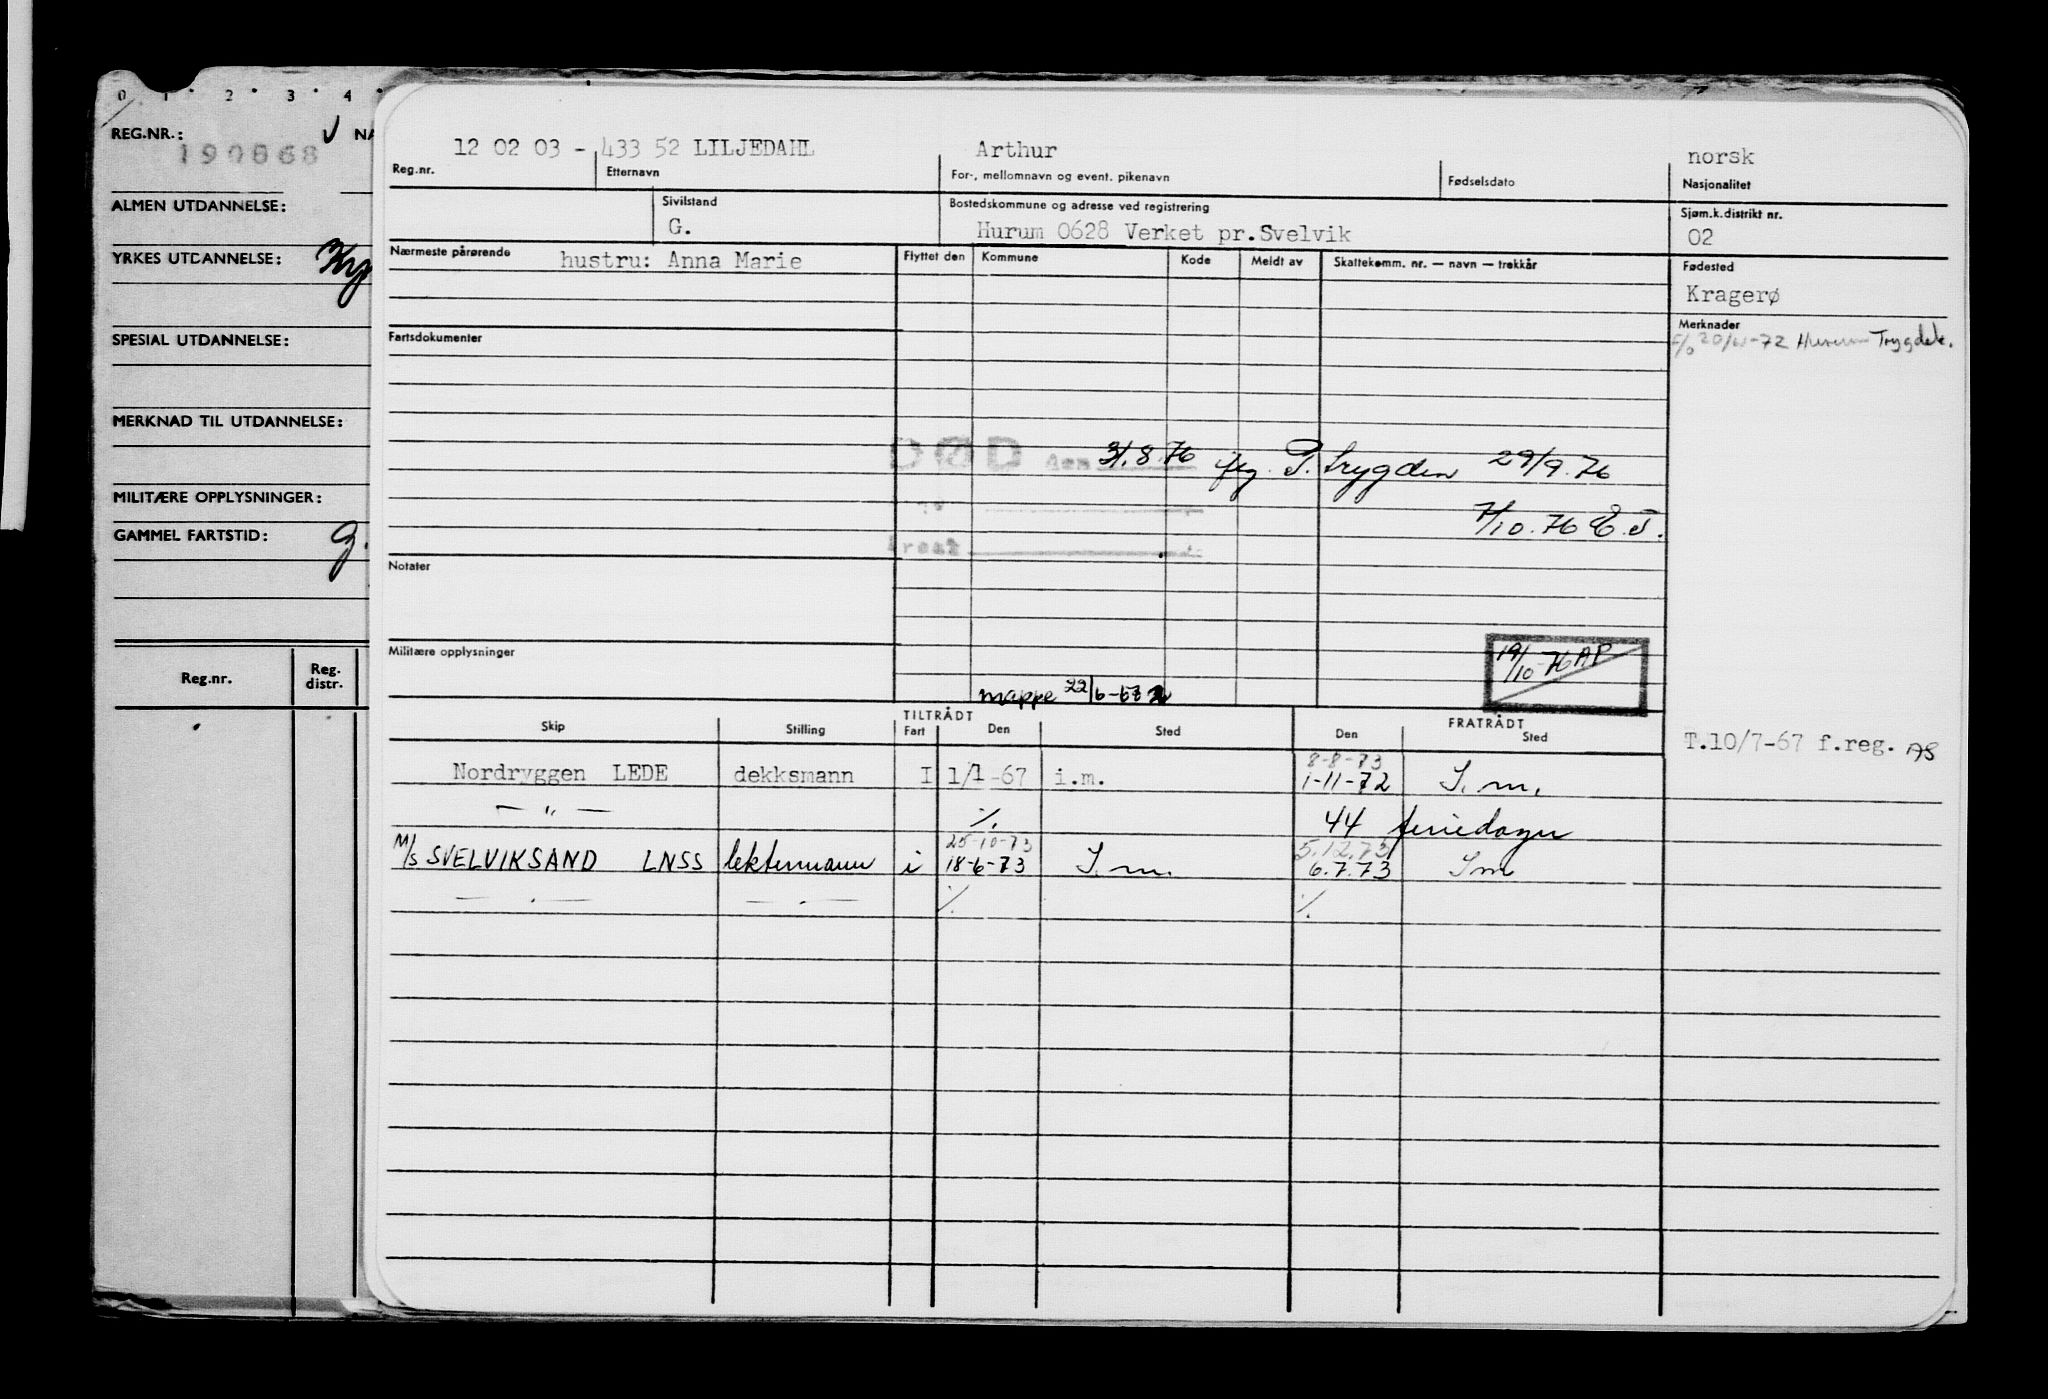 0 1 2 3 4
REG.NR.: NA
190868
ALMEN UTDANNELSE:
YRKES UTDANNELSE:
SPESIAL UTDANNELSE:
MERKNAD TIL UTDANNELSE:
MILITÆRE OPPLYSNINGER:
GAMMEL FARTSTID: g.
Reg.nr. Reg. distr.
12 02 03 - 433 52 LILJEDAHL Arthur norsk
Reg.nr. Etternavn For-, mellomnavn og event. pikenavn Fødselsdato Nasjonalitet
Sivilstand Bostedskommune og adresse ved registrering Sjøm.k.distrikt nr.
G. Hurum 0628 Verket pr.Svelvik 02
Nærmeste pårørende hustru: Anna Marie Flyttet den Kommune Kode Meldt av Skattekomm. nr. — navn — trekkår Fødested
Kragerø
Fartsdokumenter Merknader
20/11-72 Hurum Trygdek.
DØD den 31.8.76 flg. P. trygden 29/9.76
7/10.76 E.T.
Notater
Militære opplysninger
19/10-76 AP
mappe 22/6-67
Skip Stilling TILTRÅDT Fart Den Sted FRATRÅDT Den Sted
T.10/7-67 f.reg. AS
8-8-73
Nordryggen LEDE dekksmann I 1/1-67 i.m. 1-11-72 I.m.
— " — ./. 44 feriedager
25-10-73 5.12.73
M/S SVELVIKSAND LNSS lektermann i 18-6-73 I.m. 6.7.73 I m
— " — — " — ./. ./.